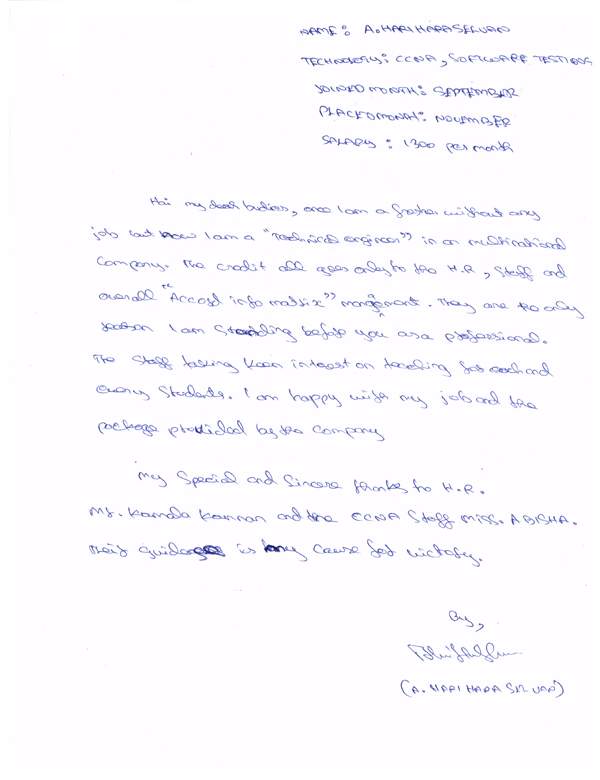 NAME: A. HARI HARA SELVAN
TECHNOLOGY: CCNA, SOFTWARE TESTING
JOINED MONTH: SEPTEMBER
PLACED MONTH: NOVEMBER
SALARY: 1300 per month
Hai my dear budies, once I am a fresher without any
job but now I am a "Technical engineer" in an multinational
company. The credit all goes only to the H.R, Staff and
overall "Accord info matrix" management. They are the only
reason I am standing before you as a professional.
The staff tasking keen interest on teaching for each and
every students. I am happy with my job and the
package provided by the company
My special and sincere thanks to H.R.
Mr. Kamala Kannan and the CCNA Staff Miss. ABISHA.
Their guidance is my cause for victory.
By,
(A. HARI HARA SELVAN)